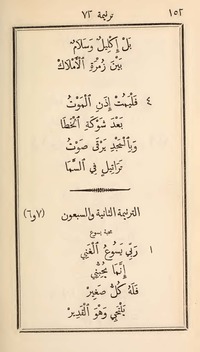 ١٥٢ ترنيمة ٧٢
بَلْ إِكْلِيلٌ وَسَلَامٌ
بَيْنَ زُمْرَةِ الْأَمْلَاكْ
٤ فَلْيَمُتْ إِذَنِ الْمَوْتُ
بَعْدَ شَوْكَةِ الْخَطَا
وَبِالْمَجْدِ يَرْقَى صَوْتُ
تَرَاتِيلَ فِي السَّمَا
الترنيمة الثانية والسبعون (٧و٦)
محبة يسوع
١ رَبِّي يَسُوعُ الْغَنِي
إِنَّمَا يُحِبُّنِي
فَلَهُ كُلُّ صَغِيرْ
يَلْتَجِي وَهْوَ الْقَدِيرْ